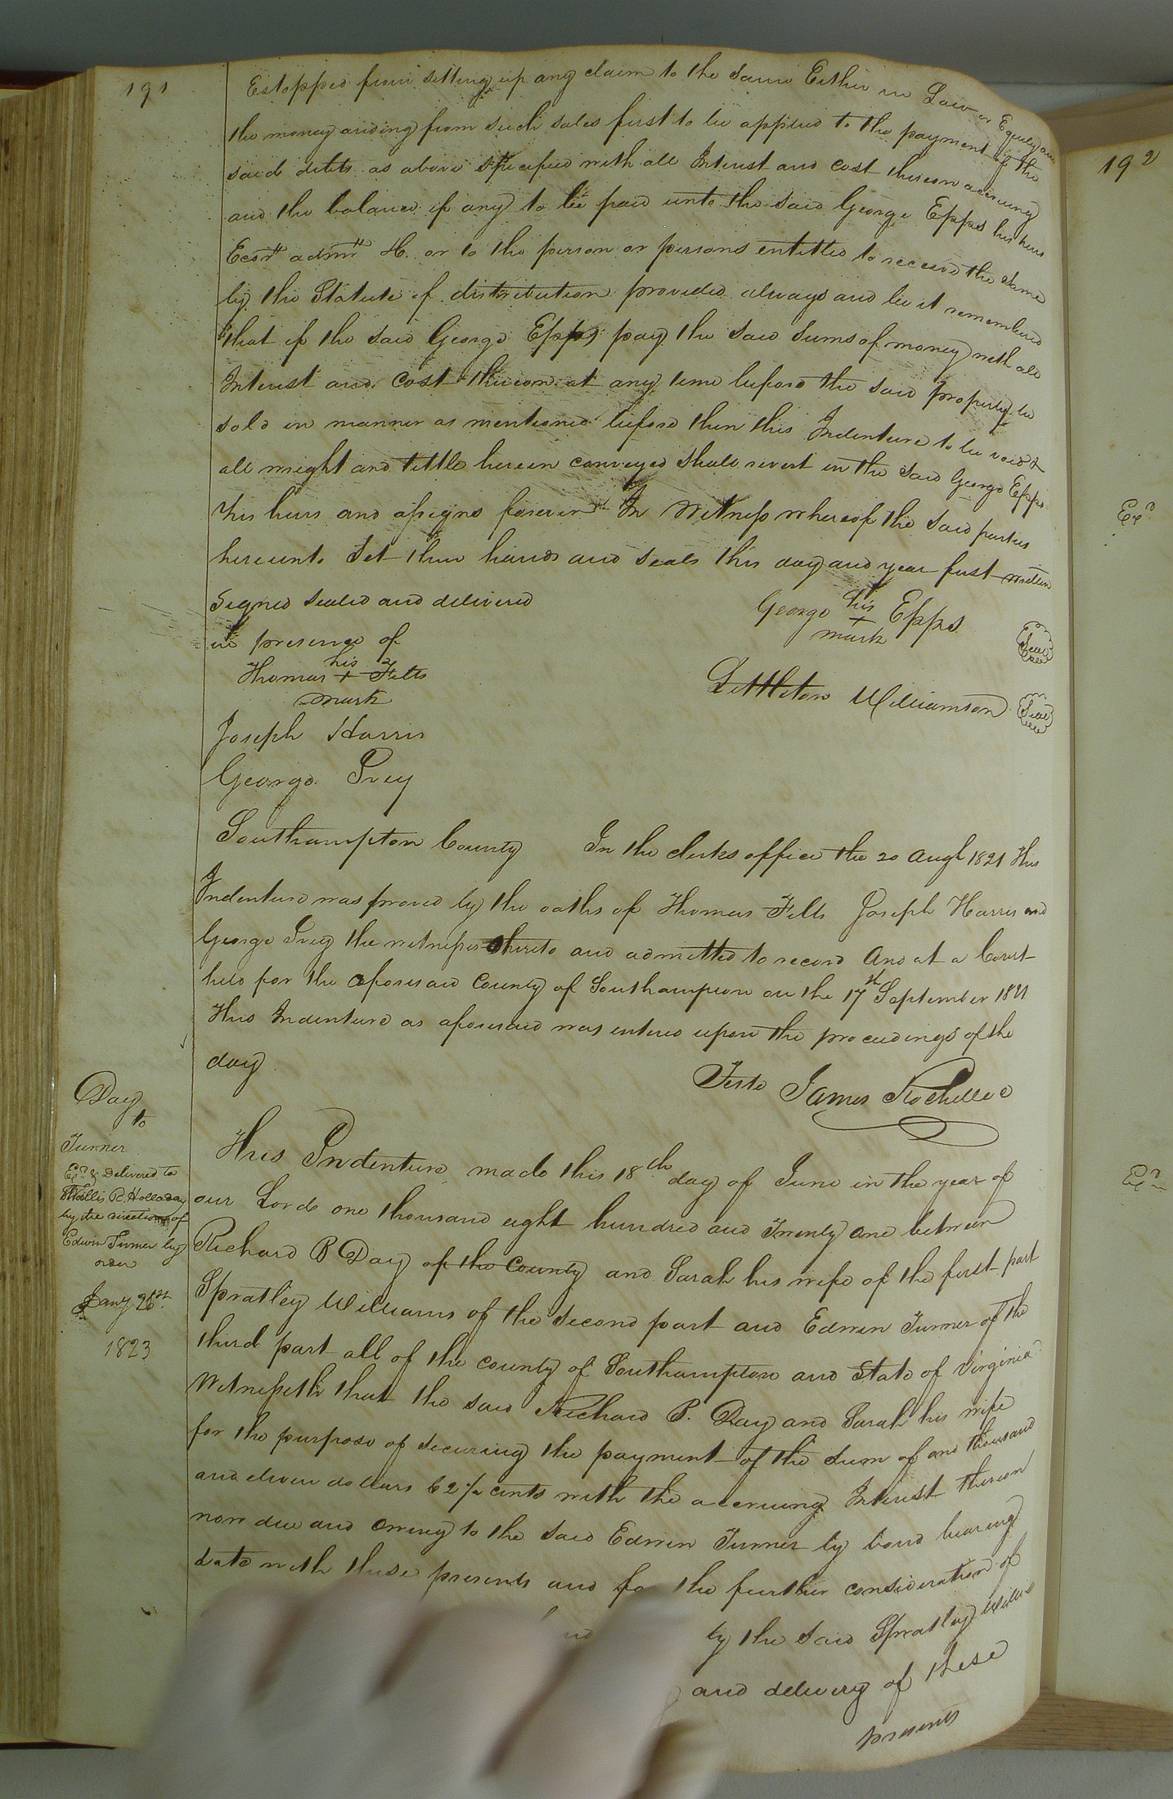 191
Estopped from setting up any claim to the same Either in Law or Equity and
the money arising from such sales first to be applied to the payment of the
said debts as above specified with all Interest and cost thereon accruing
and the balance if any to be paid unto the said George Epps his heirs
Ecors admrs &c. or to the person or persons entitled to receive the same
by the Statute of distribution provided always and be it remembered
that if the said George Epps pay the said Sums of money with all
Interest and cost thereon at any time before the said property be
sold in manner as mentioned before then this Indenture to be void &
all wright and tittle herein conveyed shall revert in the said George Epps
his heirs and assigns forever In Witness whereof the said parties
hereunto Set their hands and seals this day and year first written
Signed sealed and delivered
in presence of
George his Epps Seal
+
mark
Thomas his Felts
+
mark
Littleton Williamson Seal
Joseph Harris
George Ivey
Southampton County In the clerks office the 20 Augt 1821 This
Indenture was proved by the oaths of Thomas Felts Joseph Harris and
George Ivey the witnesses thereto and admitted to record And at a Court
held for the aforesaid County of Southampton on the 17st September 1821
This Indenture as aforesaid was entered upon the proceedings of the
day
Teste James Rochelle C
Day
to
Turner
Exd & Delivered to
Wallis R. Holladay
by the directions of
Edwin Turner by
order
Jany 26st
1823
This Indenture made this 18th day of June in the year of
our Lord one thousand eight hundred and Twenty one between
Richard B Day of the County and Sarah his wife of the first part
Spratley Williams of the Second part and Edwin Turner of the
third part all of the county of Southampton and State of Virginia
Witnesseth that the said Richard B. Day and Sarah his wife
for the purpose of securing the payment of the Sum of one thousand
and eleven dollars 62½ cents with the accruing Interest thereon
now due and owing to the said Edwin Turner by bond bearing
date with these presents and for the further consideration of
by the said Spratley Williams
and delivery of these
presents
192
Exd
Exd